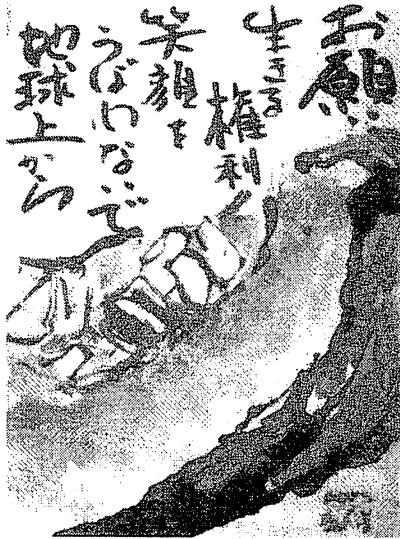 お願い
生きる
権利
笑顔を
うばわないで
地球上から